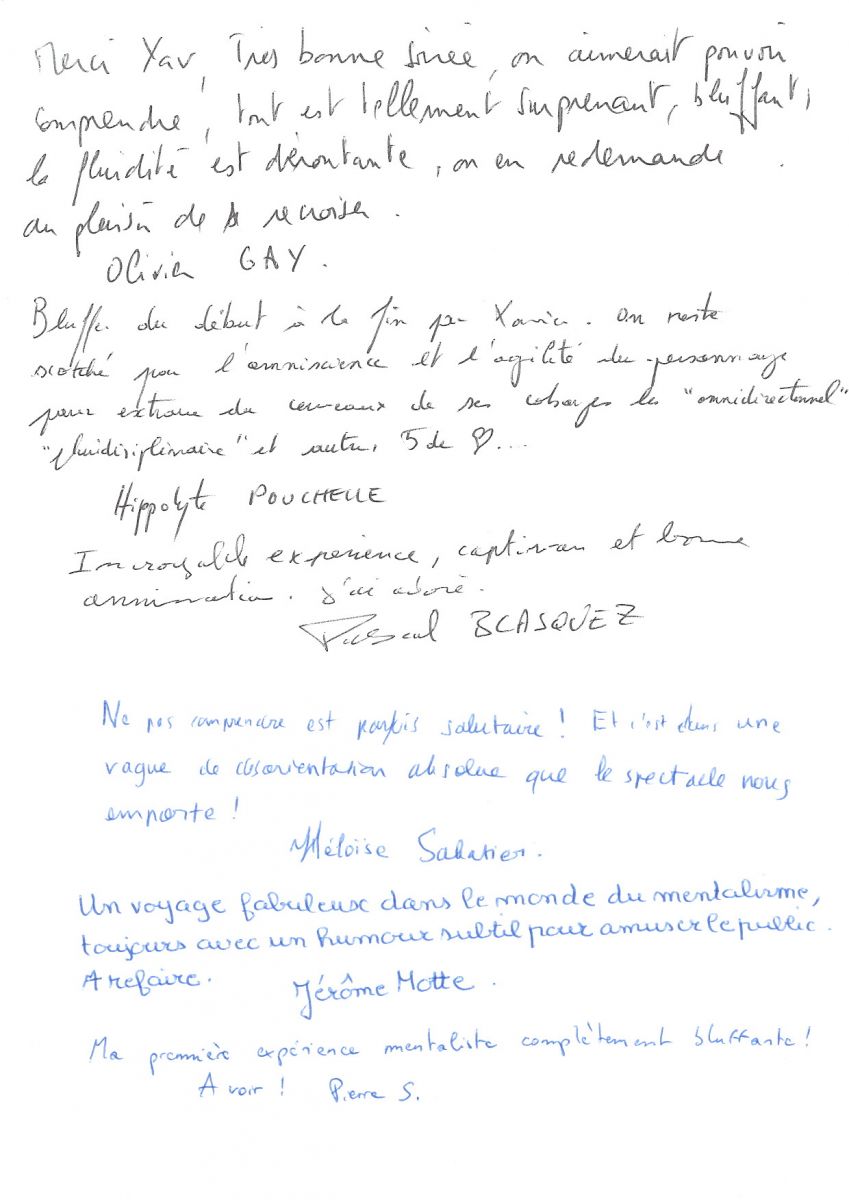 Merci Xav, Très bonne soirée, on aimerait pouvoir
comprendre, tout est tellement surprenant, bluffant,
la fluidité est déroutante, on en redemande
au plaisir de recroiser.
Olivier GAY.
Bluffé du début à la fin par Xavier. On reste
scotché par l'omniscience et l'agilité du personnage
pour extraire du cerveaux de ses cobayes les "omnidirectionnel"
"pluridisiplinaire" et autre, 5 de ♡...
Hippolyte POUCHELLE
Incroyable expérience, captivan et bonne
annimation. J'ai adoré.
Pascal BLASQUEZ
Ne pas comprendre est parfois salutaire ! Et c'est dans une
vague de désorientation absolue que le spectacle nous
emporte !
Héloïse Sabatier.
Un voyage fabuleux dans le monde du mentalisme,
toujours avec un humour subtil pour amuser le public.
A refaire.
Jérôme Motte.
Ma première expérience mentaliste complètement bluffante !
A voir ! Pierre S.